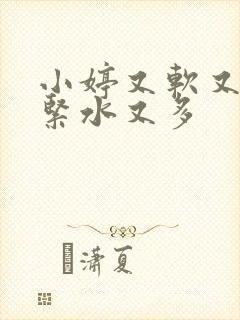 小婷又軟又
緊水又多
瀟夏